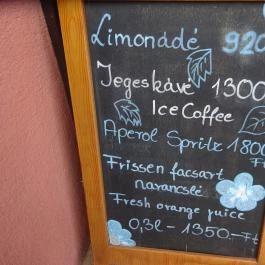 Limonádé 920
Jegeskávé 1300
Ice Coffee
Aperol Spritz 1800
Ft
Frissen facsart
narancslé
Fresh orange juice
0,3l - 1350.-Ft